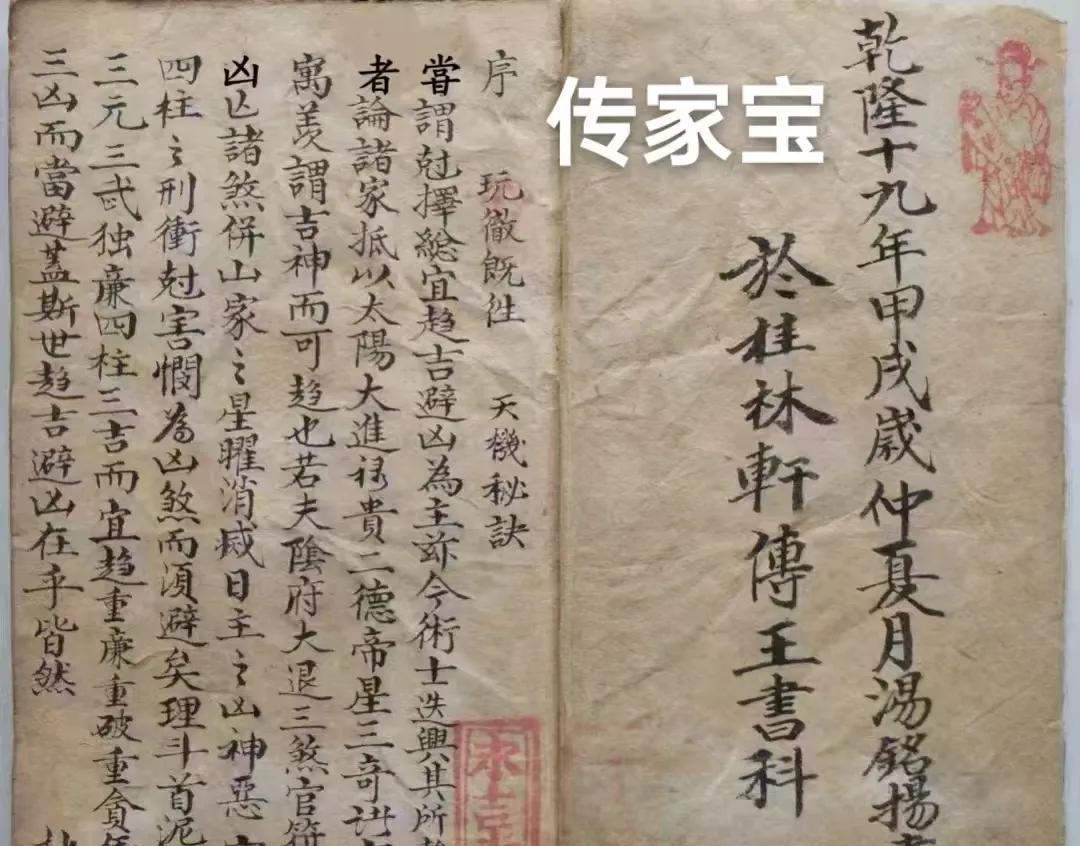 传家宝
乾隆十九年甲戌歲仲夏月湯銘揚
於桂林軒傳王書科
序 玩徹既往 天機秘訣
嘗謂尅擇総宜趋吉避凶為主玆今術士迭興其所
者論諸家抵以太陽大進祿貴二德帝星三奇
寓羙謂吉神而可趋也若夫陰府大退三煞官符
凶亡諸煞併山家之星曜消烕日主之凶神惡
四柱之刑衝尅害憫為凶煞而湏避矣理斗首泥
三元三武独廉四柱三吉而宜趋重廉重破重貪
三凶而當避蓋斯世趋吉避凶在乎皆然